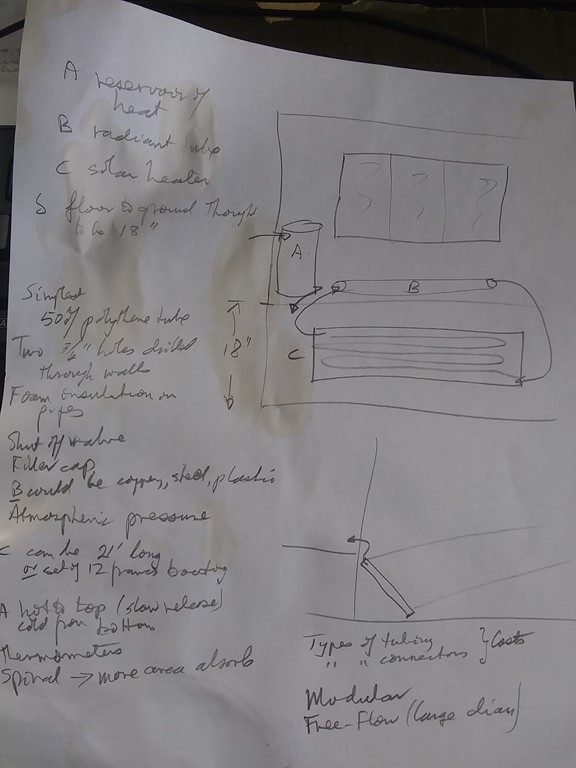 A reservoir of
heat
B radiant tube
C solar heater
S floor to ground though
to be 18"
A
B
18"
C
Simplest
50' of polythene tube
Two 3/4" holes drilled
through walls
Foam insulation on
pipes
Shut off valve
Filler cap
B could be copper, steel, plastic
Atmospheric pressure
C can be 21' long
or set of 12 frames
A hot to top (slow release)
cold from bottom
Thermometers
Spiral → more area absorb
Types of tubing } Costs
" " connectors
Modular
Free-Flow (large diam)